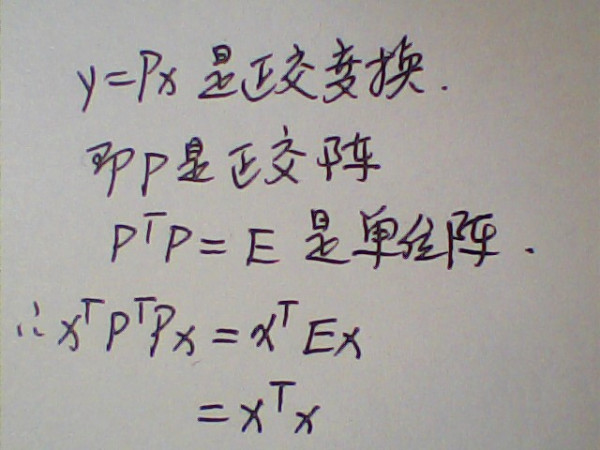 y=Px 是正交变换.
即P是正交阵
PᵀP=E 是单位阵.
∴xᵀPᵀPx=xᵀEx
=xᵀx